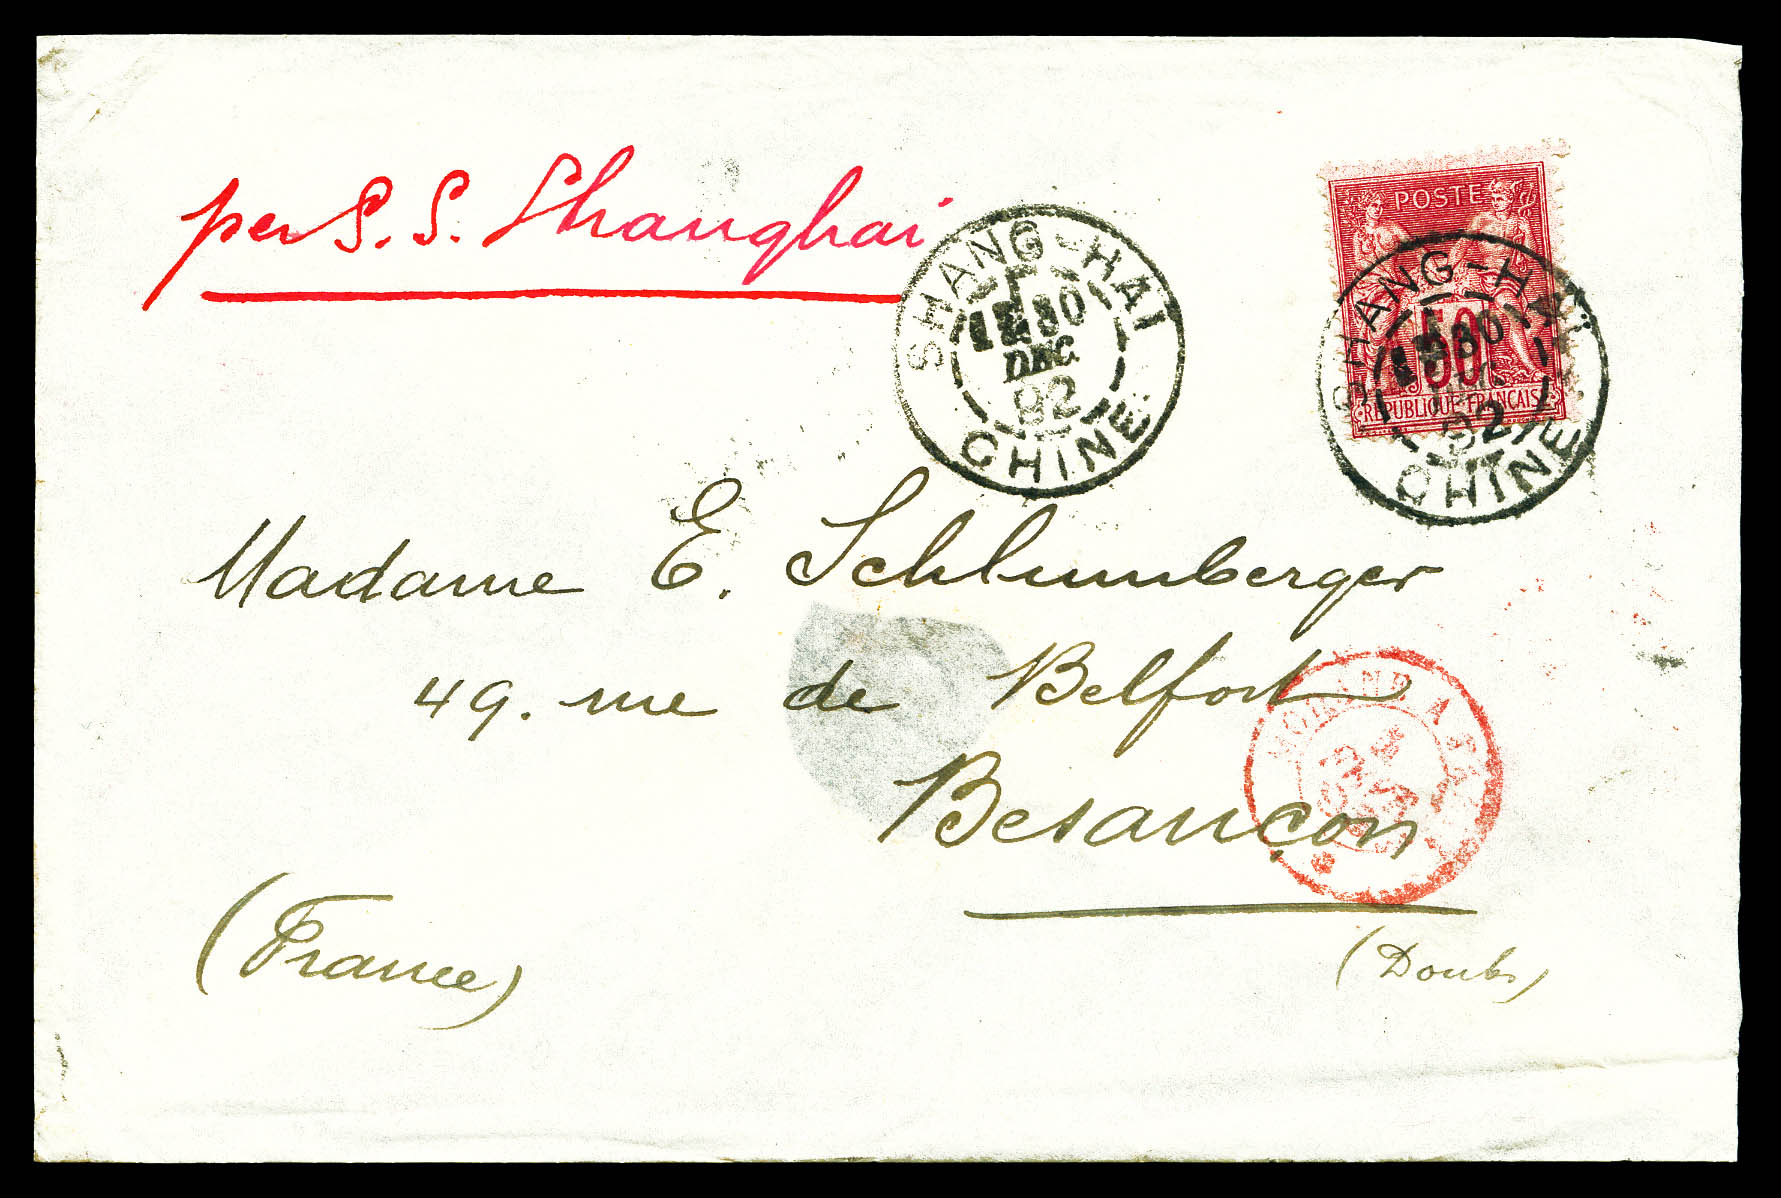 per S. S. Shanghai
SHANG-HAI
DEC
92
CHINE
POSTE
50
RÉPUBLIQUE FRANÇAISE
SHANG-HAI
92
CHINE
Madame E. Schlumberger
49. rue de Belfort
Besançon
(France)
(Doubs)